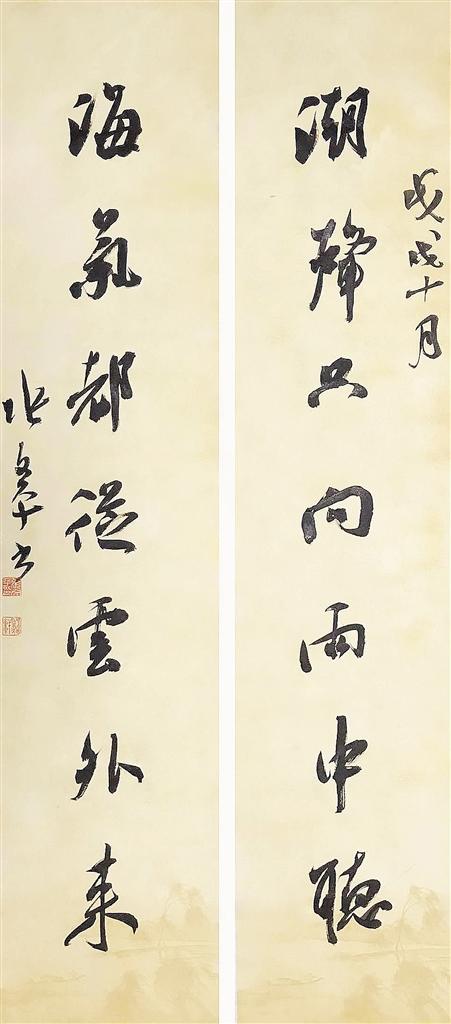 戊戌十月
湖聲只向雨中聽
海氣都從雲外來
張書